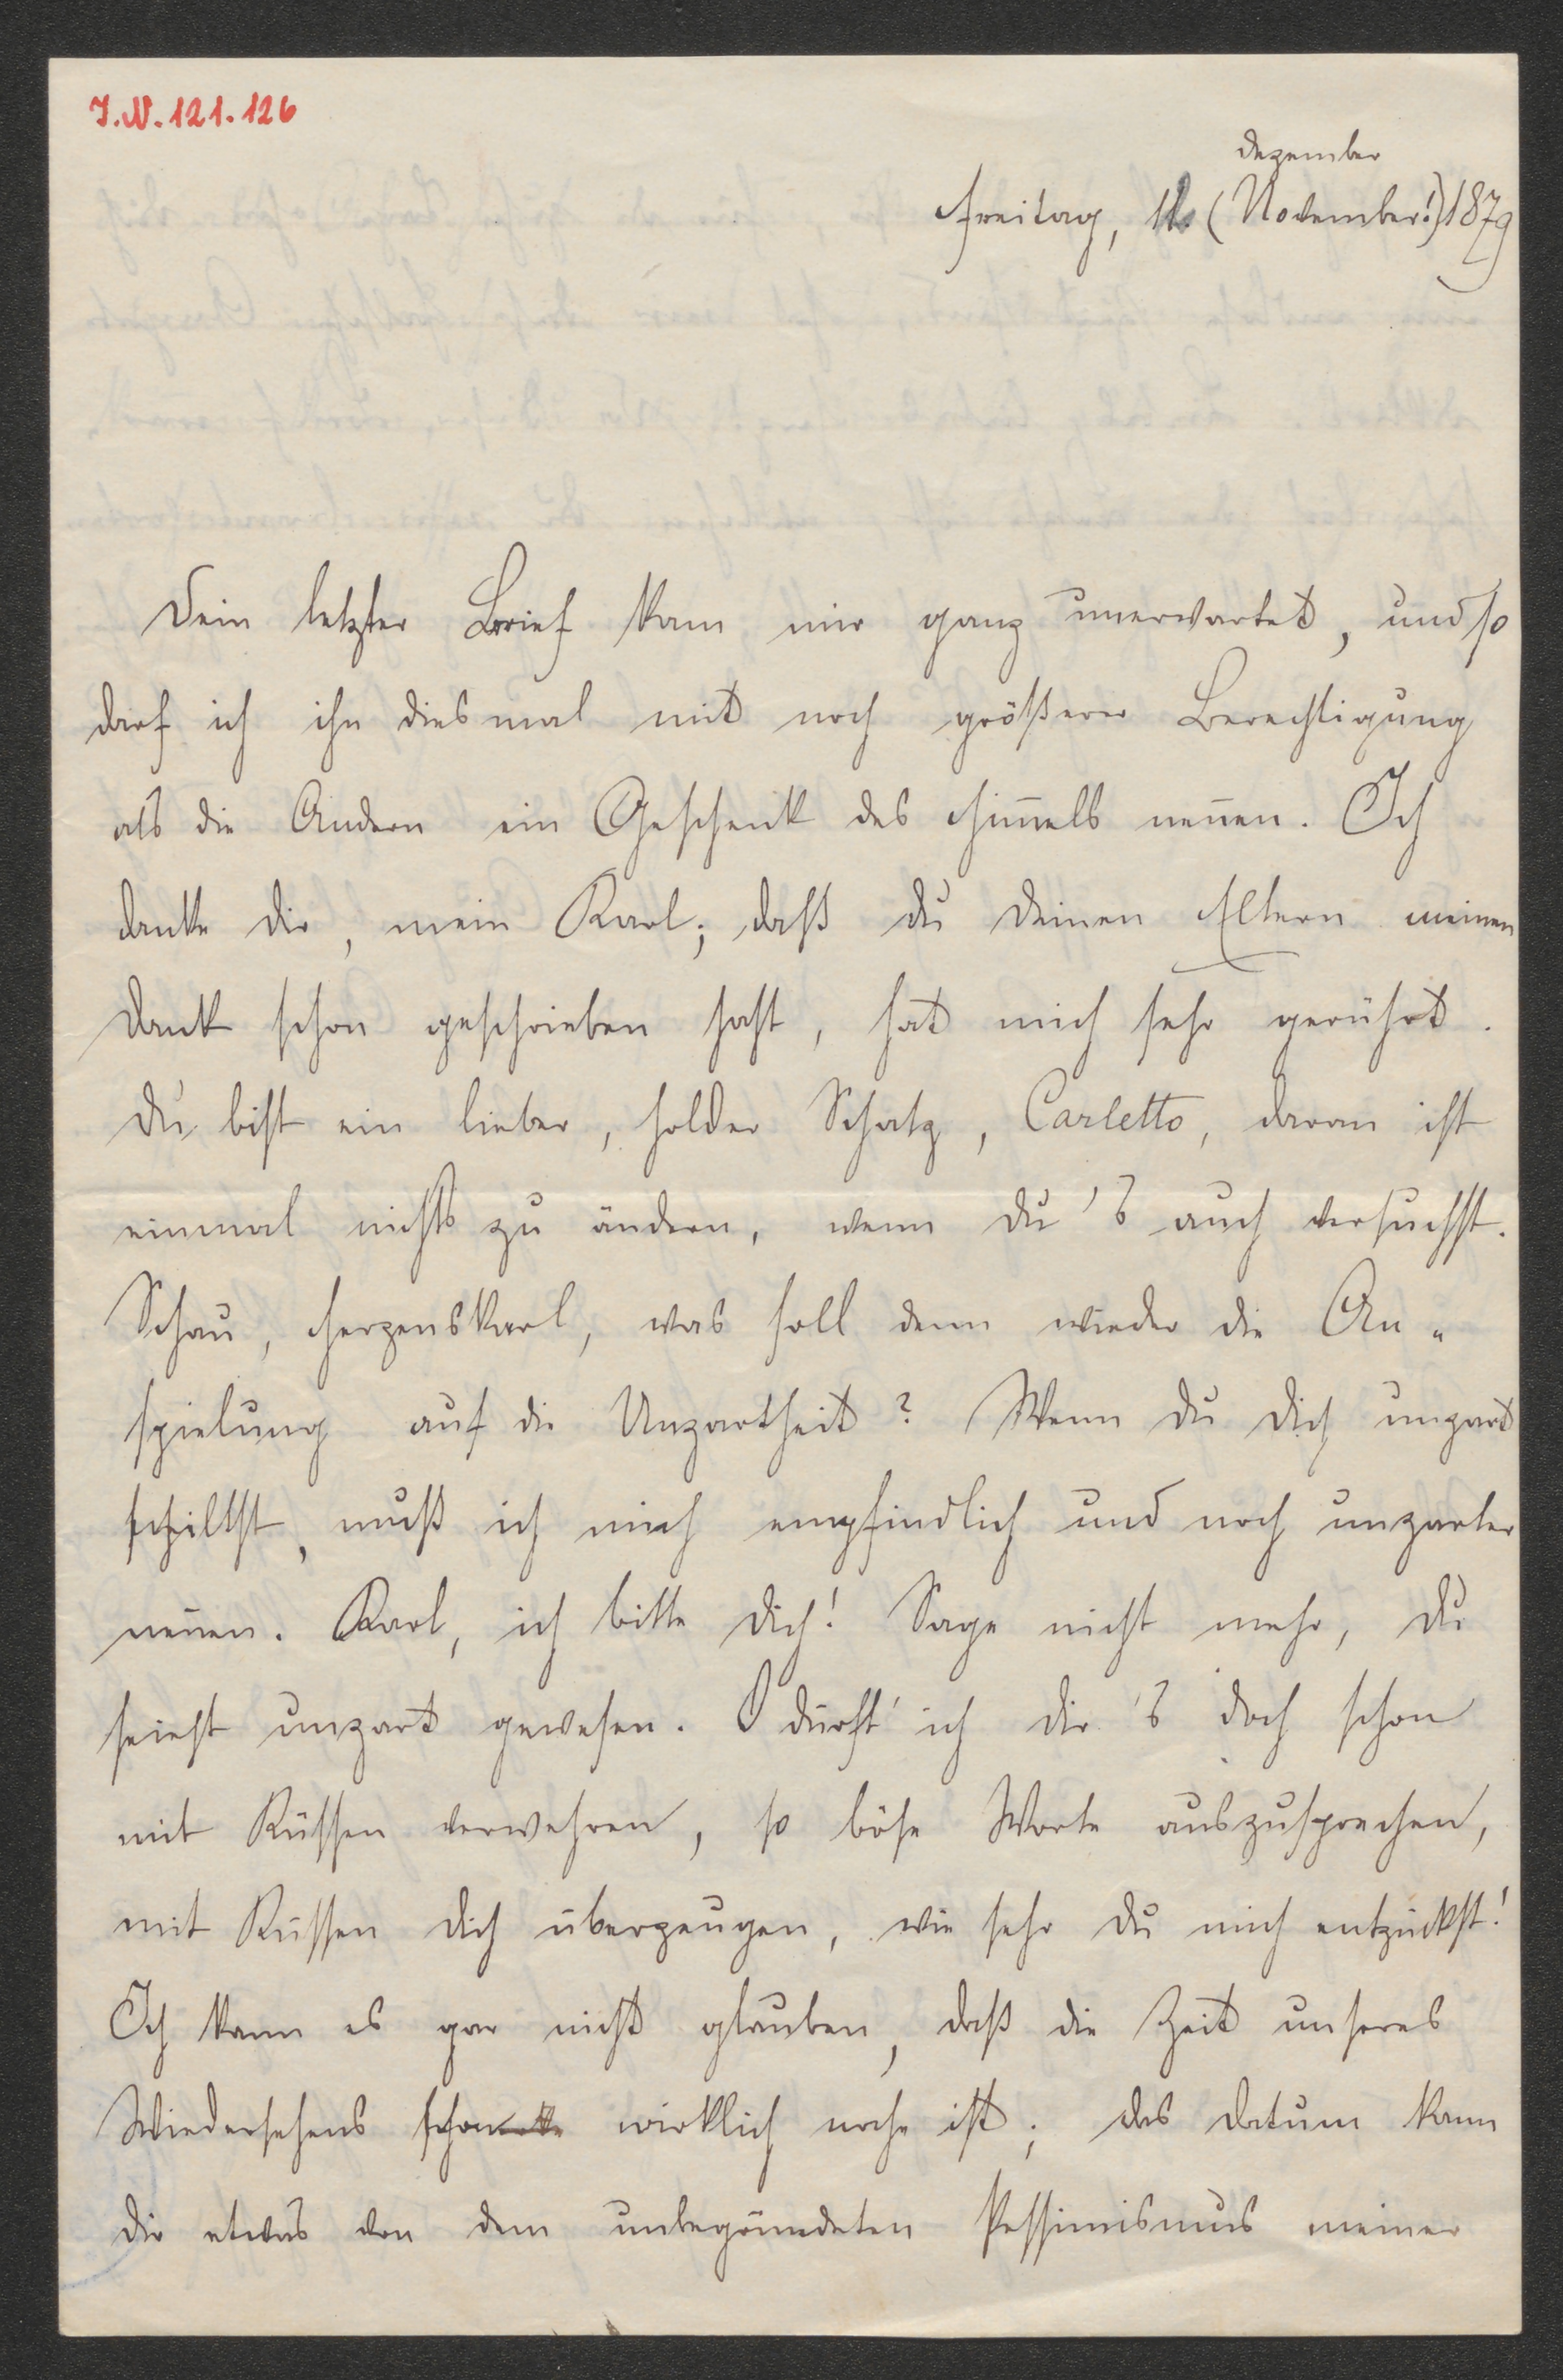 I.N. 121.126
Dezember
Freitag, 11. (November!) 1879
Dein letzter Brief kam mir ganz unerwartet, und so
darf ich ihn diesmal mit noch größerer Berechtigung
als die Andern ein Geschenk des Him̄els nen̄en. Ich
danke dir, mein Karl; daß du deinen Eltern meinen
Dank schon geschrieben hast, hat mich sehr gerührt.
Du bist ein lieber, holder Schatz, Carletto, daran ist
einmal nichts zu ändern, wenn du's auch versuchst.
Schau, Herzenskarl, was soll denn wieder die An„
spielung auf die Unzartheit? Wenn du dich unzart
schiltst, muß ich mich empfindlich und noch unzarter
nen̄en. Karl, ich bitte dich! Sage nicht mehr, du
seiest unzart gewesen. O dürft' ich dir's doch schon
mit Küssen verwehren, so böse Worte auszusprechen,
mit Küssen dich überzeugen, wie sehr du mich entzückst!
Ich kann es gar nicht glauben, daß die Zeit unseres
Wiedersehens schon wirklich nahe ist; das Datum kann
dir etwas von dem unbegründeten Pessimismus meiner